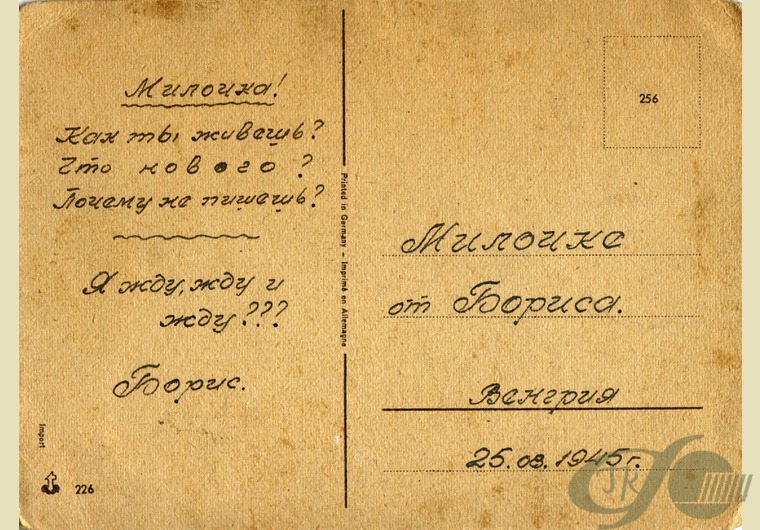 Милочка!
Как ты живешь?
Что нового?
Почему не пишешь?
Я жду, жду и
жду???
Борис.
Import
226
Printed in Germany – Imprimé en Allemagne
256
Милочке
от Бориса.
Венгрия
25.03.1945г.
JR